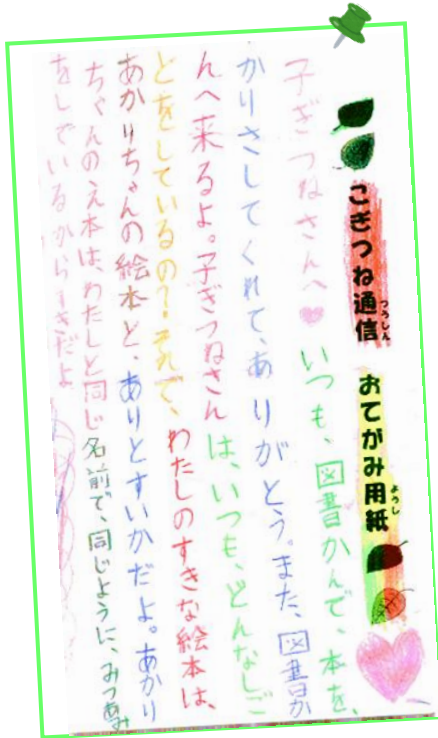 こぎつね通信 おてがみ用紙
つうしん ようし
子ぎつねさんへ いつも、図書かんで、本を、
かりさしてくれて、ありがとう。また、図書か
んへ来るよ。子ぎつねさんは、いつも、どんなしご
とをしているの？それで、わたしのすきな絵本は、
あかりちゃんの絵本と、ありとすいかだよ。あかり
ちゃんのえ本は、わたしと同じ名前で、同じように、みつあみ
をしているからすきだよ